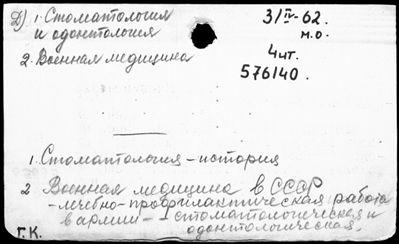 Д) 1. Стоматология
и одонтология
2. Военная медицина
31/IV-62.
м.о.
4 чт.
576140.
1. Стоматология - история
2 Военная медицина в СССР
- лечебно-профилактическая работа
в армии - стоматологическая и
одонтологическая.
Г.К.